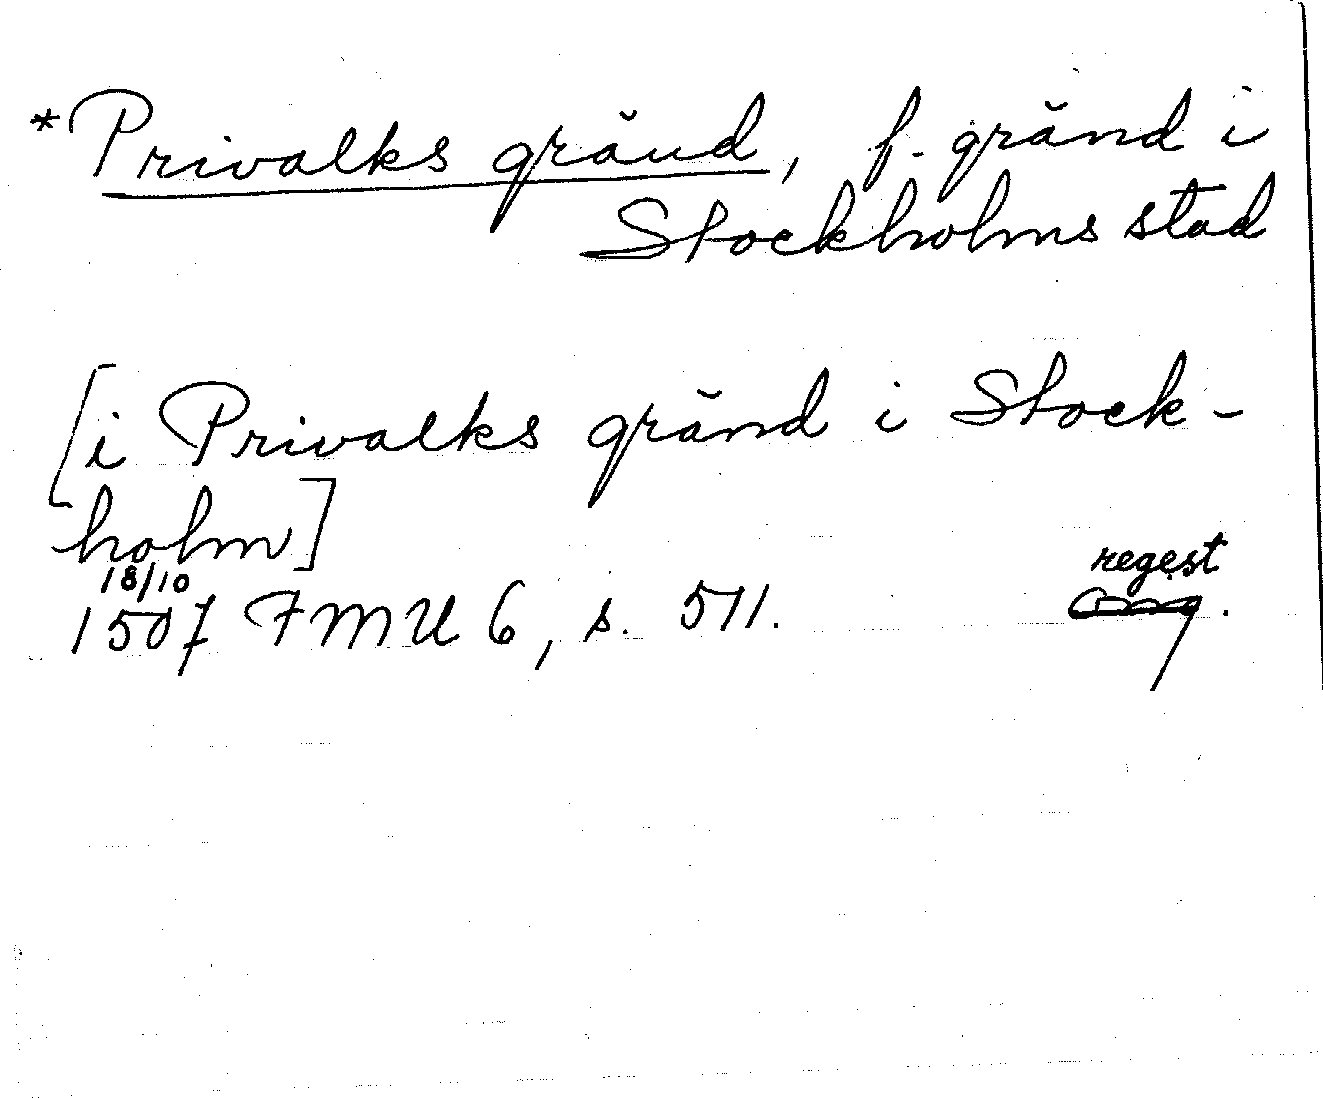 *Privalks gränd, f. gränd i
Stockholms stad
[i Privalks gränd i Stock-
holm]
18/10
1507 FMU 6, s. 511.
regest